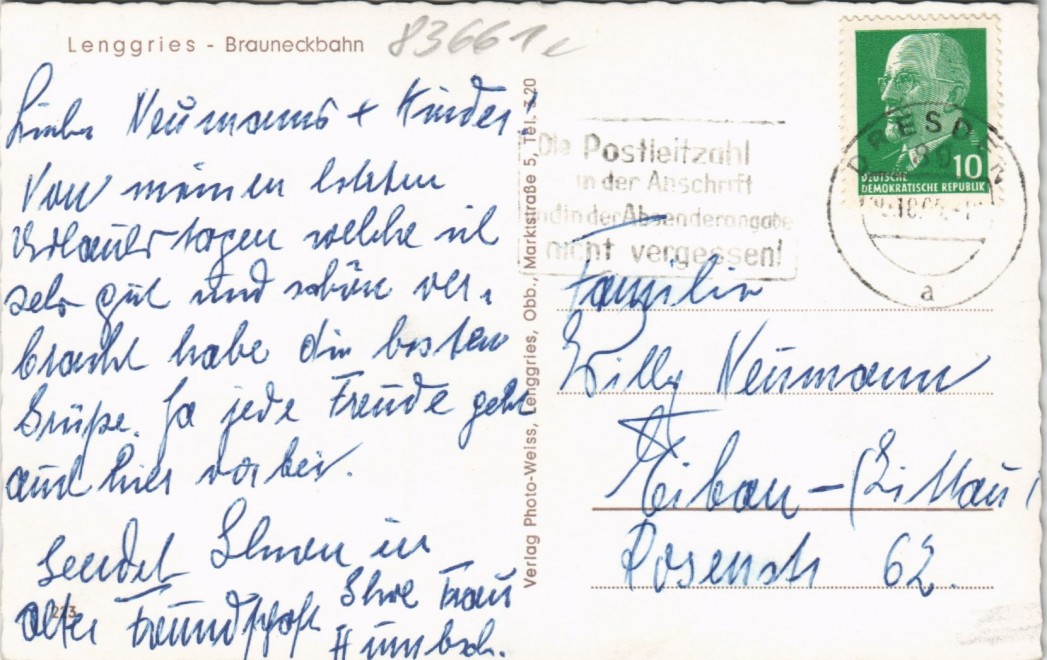 Lenggries - Brauneckbahn
83661c
Liebe Neumanns + Kinder!
Von meinen letzten
Urlaubstagen welche ich
sehr gut und schön ver-
bracht habe die besten
Grüße. Ja jede Freude geht
auch hier vorbei.
Sendet Ihnen in
alter Freundschaft Ihre Frau
Humbsch.
223
Verlag Photo-Weiss, Lenggries, Obb., Marktstraße 5, Tel. 320
Die Postleitzahl
in der Anschrift
und in der Absenderangabe
nicht vergessen!
DRESDEN
a
10
DEUTSCHE
DEMOKRATISCHE REPUBLIK
Familie
Willy Neumann
Eibau - (Zittau)
Rosenstr 62.